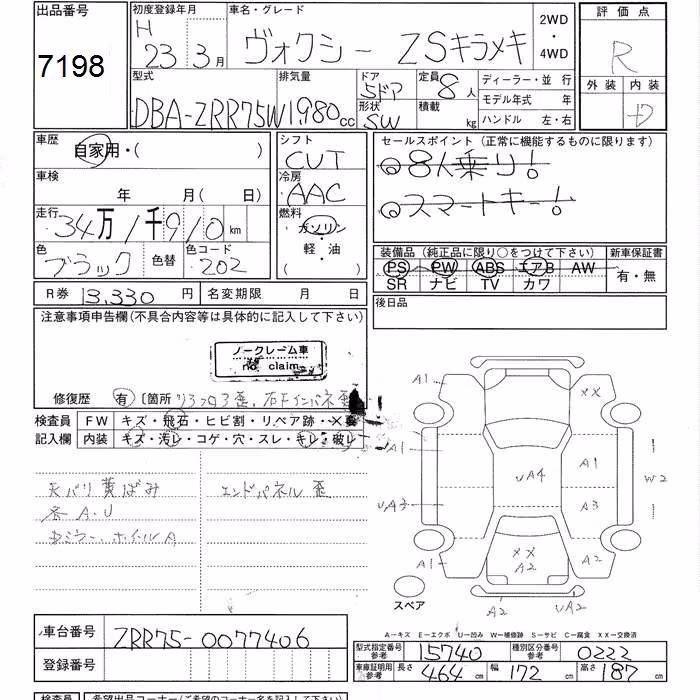 出品番号
7198
初度登録年月
H 23年 3月
車名・グレード
ヴォクシー ZSキラメキ
2WD
・
4WD
評価点
R
外装 内装
D
型式
DBA-ZRR75W
排気量
1,980cc
ドア
5ドア
形状
SW
定員
8人
積載
kg
ディーラー・並行
モデル年式 年
ハンドル 左・右
車歴
自家用・( )
車検
年 月( 日)
走行
34万1千910km
色
ブラック
色替
色コード
202
シフト
CVT
冷房
AAC
燃料
ガソリン
・
軽・油
( )
セールスポイント (正常に機能するものに限ります)
◎8人乗り!
◎スマートキー!
装備品 (純正品に限り○をつけて下さい)
PS PW ABS エアB AW
SR ナビ TV カワ
新車保証書
有・無
後日品
R券 13,330円
名変期限 月 日
注意事項申告欄(不具合内容等は具体的に記入して下さい)
ノークレーム車
no claim
修復歴 有 〔箇所
検査員
記入欄
FW キズ・飛石・ヒビ割・リペア跡・×要
内装 キズ・汚レ・コゲ・穴・スレ・キレ・破レ
天バリ黄ばみ
各A・U
ホイールA
エンドパネル歪
A1
XX
A1
UA4
A1
W2
UA3
A3
A1
XX
A2
A2
A2
UA2
スペア
A－キズ E－エクボ U－凹み W－補修跡 S－サビ C－腐食 XX－交換済
車台番号
ZRR75-0077406
登録番号
型式指定番号
参考
15740
種別区分番号
参考
0222
車庫証明用
参考
長さ
464cm
幅
172cm
高さ
187cm
検査員
希望出品コーナー(ご希望のコーナーに○を記入して下さい)